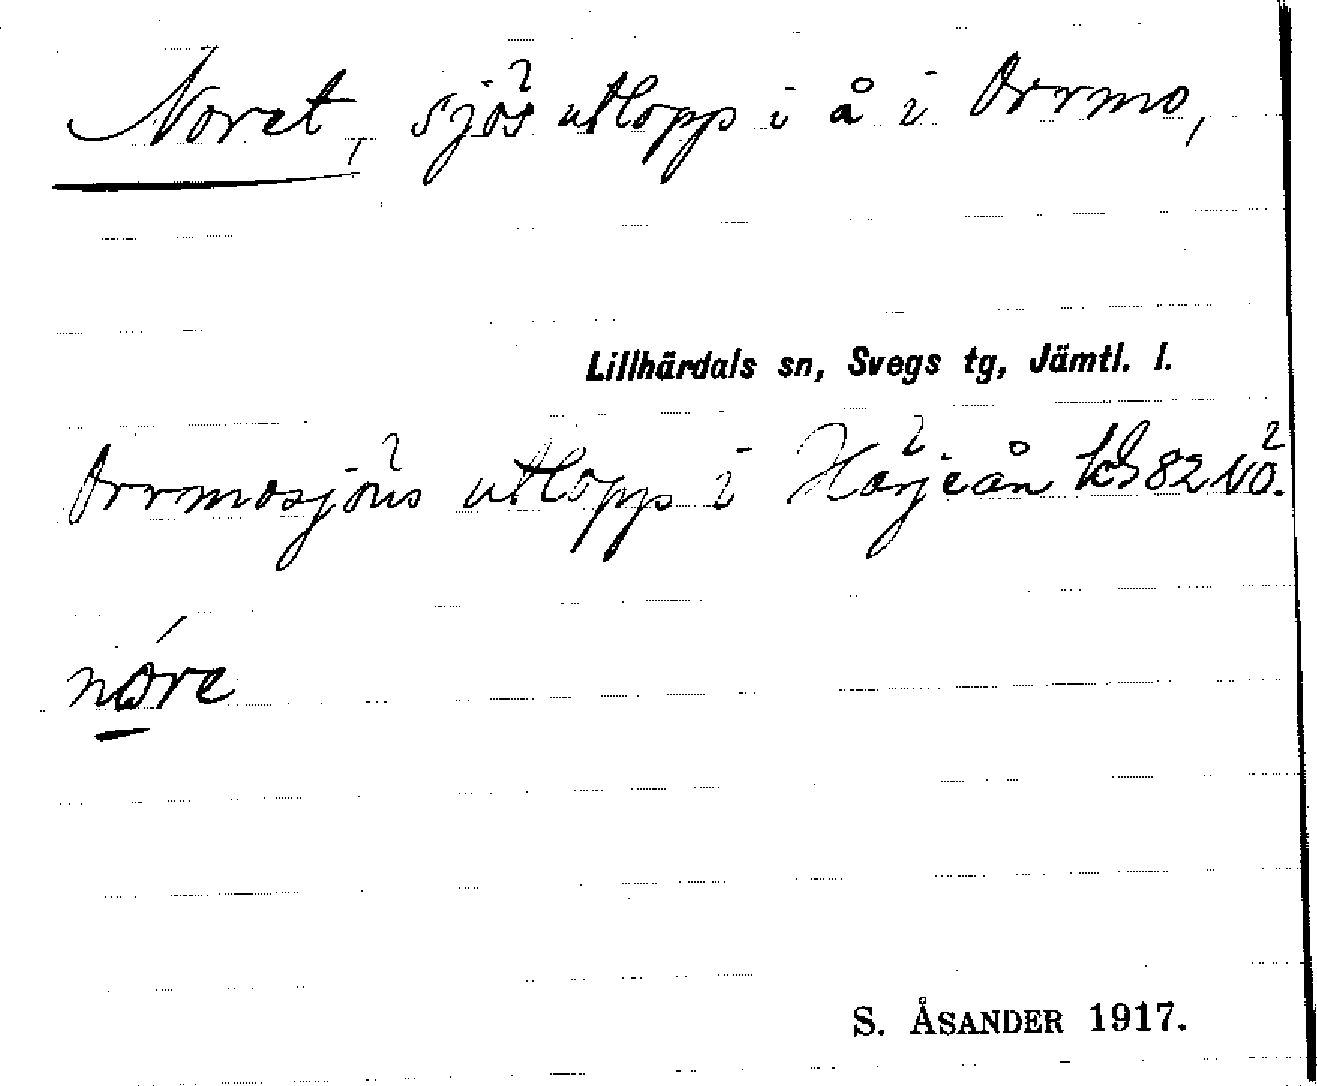 Noret, sjös utlopp i å i Orrmo,
Lillhärdals sn, Svegs tg, Jämtl. l.
Orrmosjöns utlopp i Härjeån kbl 82 NÖ.
nóre
S. ÅSANDER 1917.